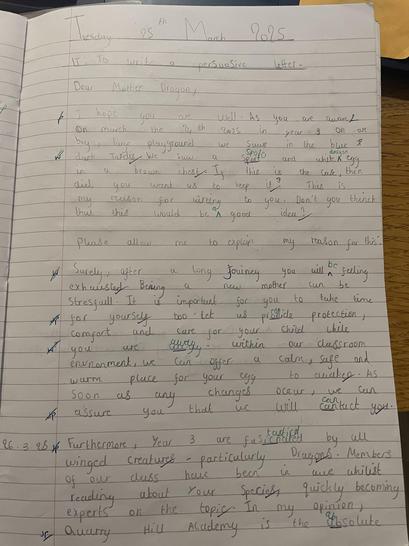 Tuesday 25th March 2025
LI: To write a persuasive letter.
Dear Mother Dragon,
I hope you are well. As you are aware
on march the 24th 2025 in year 3 on our
big, large playground we saw in the blue
dust We saw a spot and white egg
in a brown chest. If this is the case, then
did you want us to keep it? This is
my reason for writing to you. Don't you think
that this would be a good idea?
Please allow me to explain my reason for this:
Surely, after a long Journey you will be feeling
exhausted. Being a new mother can be
stressfull. It is important for you to take time
for yourself too. Let us provide protection,
comfort and care for your child while
you are away. Within our classroom
environment, we can offer a calm, safe and
warm place for your egg to awaken. As
soon as any changes occur, we can
assure you that we will contact you.
26.3.25
Furthermore, Year 3 are fascinated by all
winged creatures - particularly Dragons. Members
of our class have been in awe whilst
reading about Your Species, quickly becoming
experts on the topic. In my opinion,
Quarry Hill Academy is the absolute